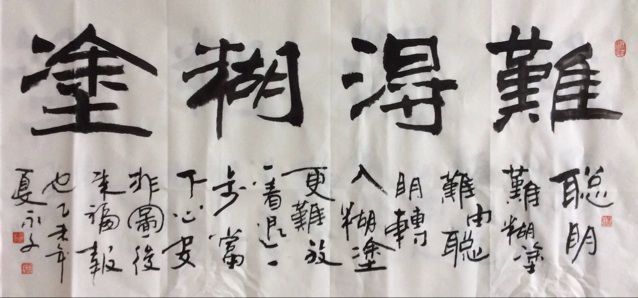 難得糊塗
聪明
難糊塗
難由聪
明轉
入糊塗
更難放
一着退一
步當
下心安
非圖後
来福報
也乙未年
夏永